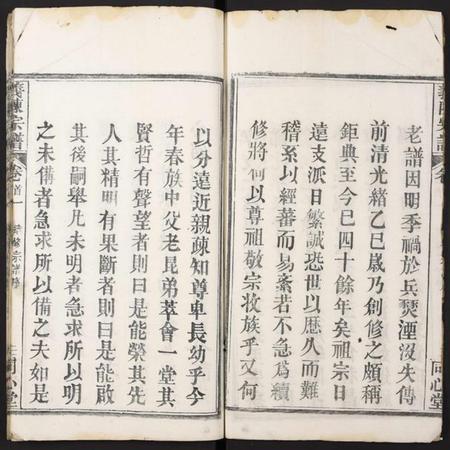 老譜因明季禍於兵燹湮沒失傳
前清光緒乙巳歲乃創修之頗稱
鉅典至今已四十餘年矣祖宗日
遠支派日繁誠恐世以歷久而難
稽系以經蕃而易紊若不急為續
修將何以尊祖敬宗收族乎又何
同心堂
以分遠近親疎知尊卑長幼乎今
年春族中父老昆弟萃會一堂其
賢哲有聲望者則曰是能榮其先
人其精明有果斷者則曰是能啟
其後嗣舉凡未明者急求所以明
之未備者急求所以備之夫如是
義陳宗譜
卷首一
同心堂